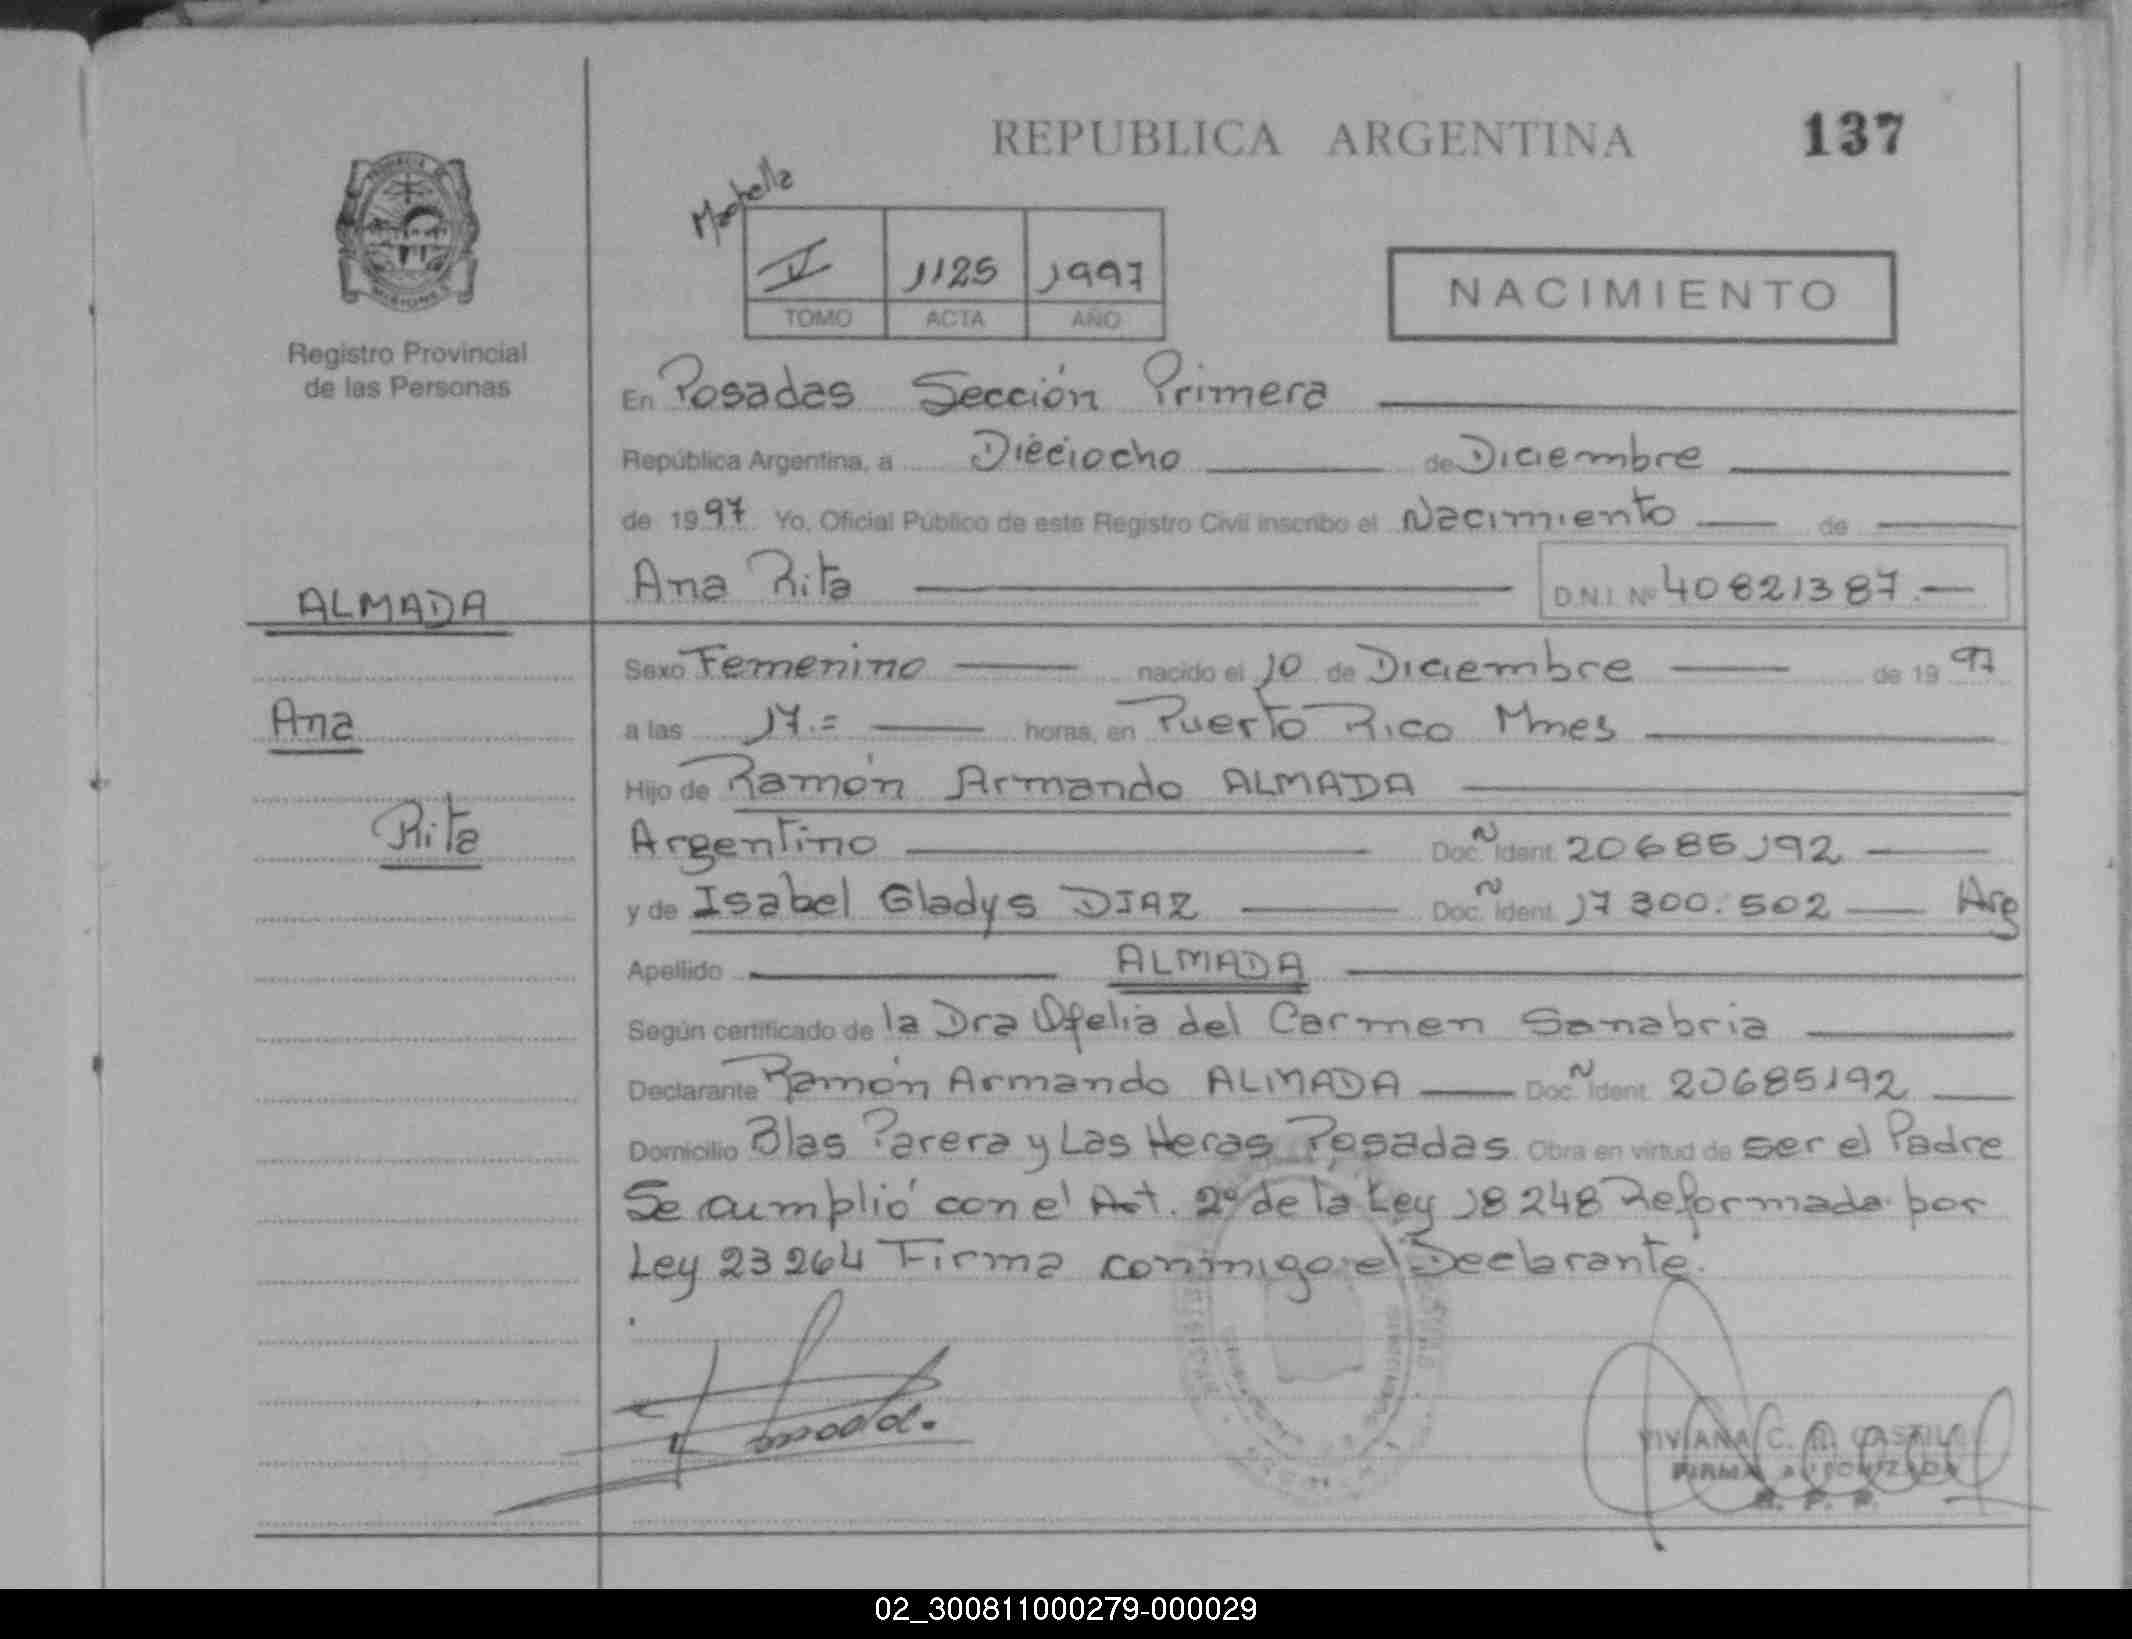 REPUBLICA ARGENTINA
137
PROVINCIA
MISIONES
Registro Provincial
de las Personas
V 1125 1997
TOMO ACTA AÑO
NACIMIENTO
En Posadas Sección Primera
República Argentina, a Dieciocho de Diciembre
de 1997 Yo, Oficial Público de este Registro Civil inscribo el Nacimiento de
Ana Rita D.N.I. Nº 40821387.—
ALMADA
Sexo Femenino nacido el 10 de Diciembre de 1997
Ana
a las 17.= horas, en Puerto Rico Mnes
Hijo de Ramón Armando ALMADA
Rita
Argentino Doc. Ñ Ident. 20685192
y de Isabel Gladys DIAZ Doc. Ñ Ident. 17300.502 — Arg
Apellido ALMADA
Según certificado de la Dra Ofelia del Carmen Sanabria
Declarante Ramón Armando ALMADA Doc. Ñ Ident. 20685192
Domicilio Blas Parera y Las Heras Posadas Obra en virtud de ser el Padre
Se cumplió con el Art. 2º de la Ley 18248 Reformada por
Ley 23264 Firma conmigo el Declarante.
VIVIANA C.
FIRMA AUTORIZADA
R. P. P.
02_300811000279-000029